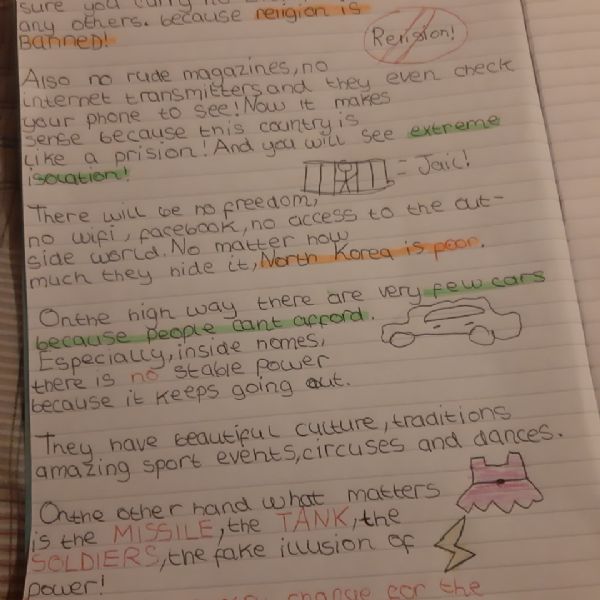 sure you carry no
any others. because religion is
Banned!
Religion!
Also no rude magazines, no
internet transmitters and they even check
your phone to see! Now it makes
sense because this country is
like a prision! And you will see extreme
isolation!
= Jail!
There will be no freedom,
no wifi, facebook, no access to the out-
side world. No matter how
much they hide it, North Korea is poor.
Onthe high way there are very few cars
because people cant afford.
Especially, inside homes,
there is no stable power
because it keeps going out.
They have beautiful culture, traditions
amazing sport events, circuses and dances.
Onthe other hand what matters
is the MISSILE, the TANK, the
SOLDIERS, the fake illusion of
power!
change for the